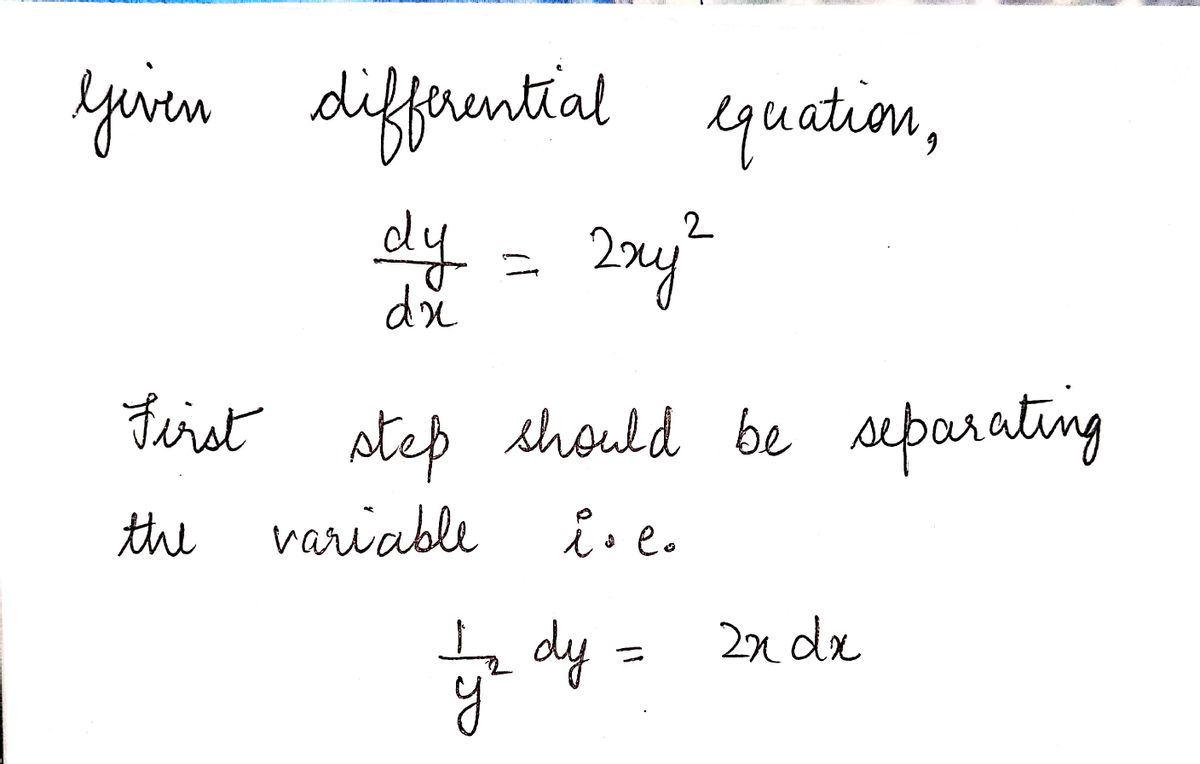 Given differential equation,
dy/dx = 2xy²
First step should be separating
the variable i.e.
1/y² dy = 2x dx